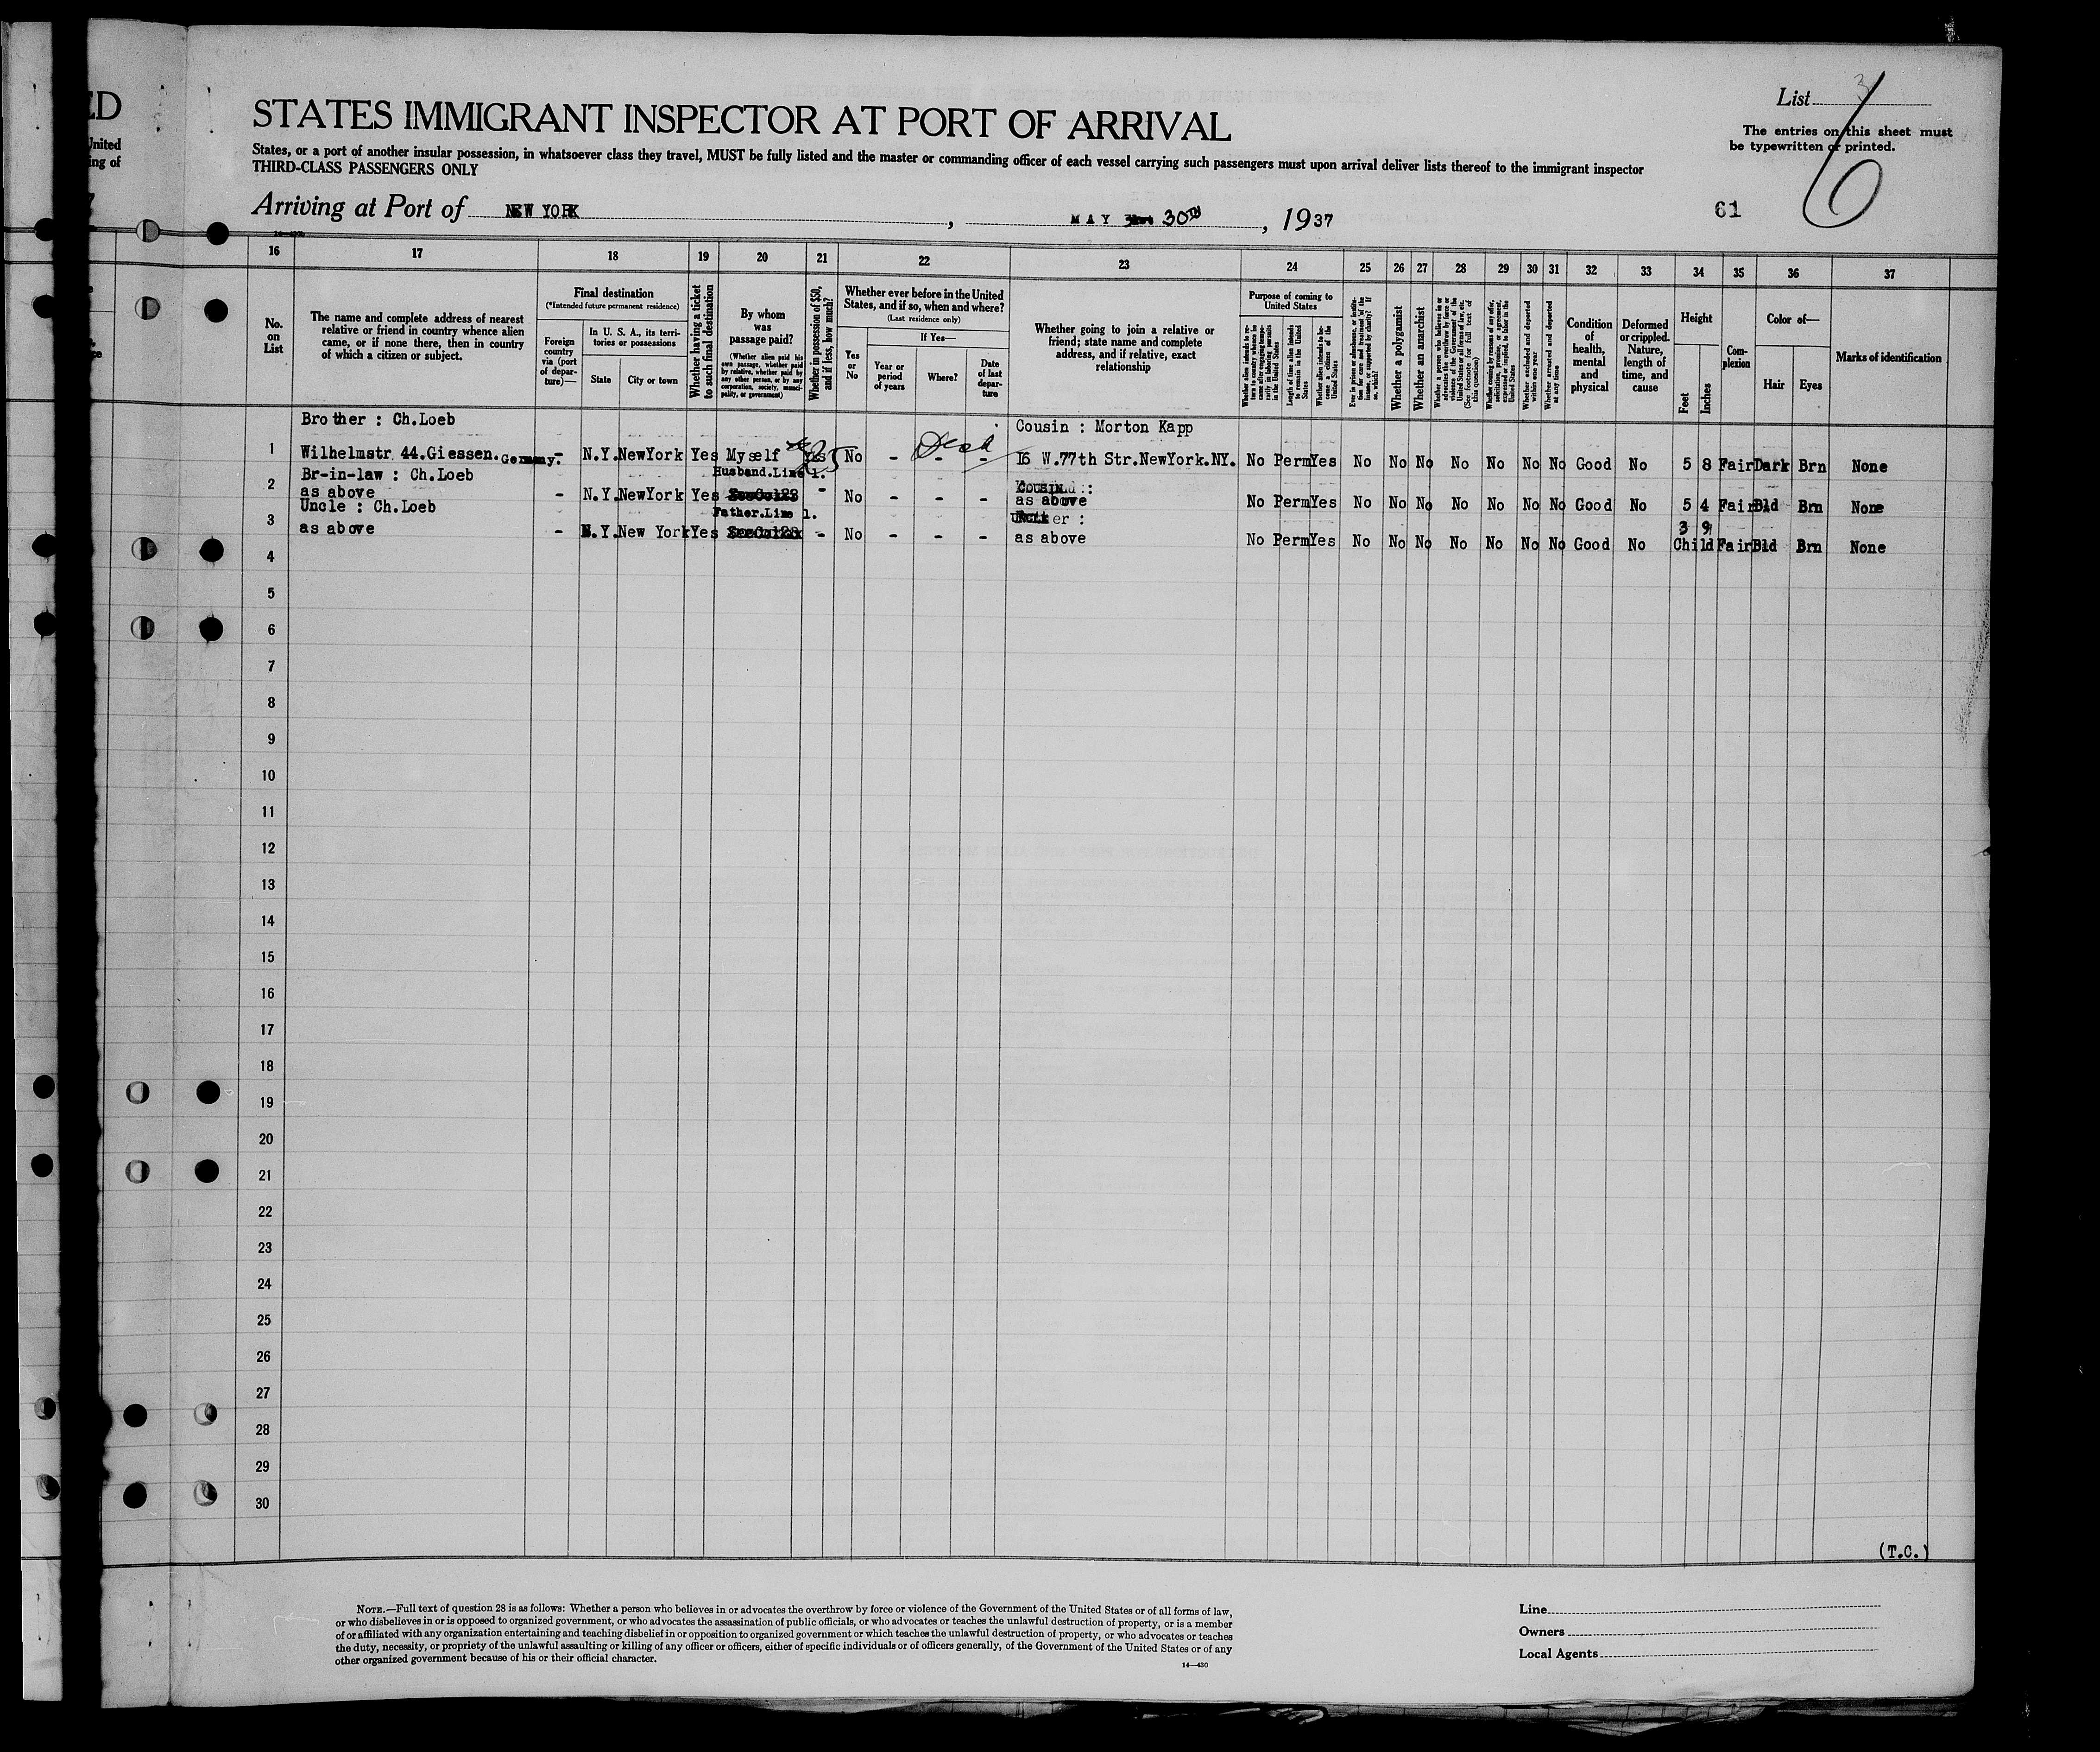 ED
United
ing of
STATES IMMIGRANT INSPECTOR AT PORT OF ARRIVAL
List 3
6
The entries on this sheet must
be typewritten or printed.
States, or a port of another insular possession, in whatsoever class they travel, MUST be fully listed and the master or commanding officer of each vessel carrying such passengers must upon arrival deliver lists thereof to the immigrant inspector
THIRD-CLASS PASSENGERS ONLY
Arriving at Port of NEW YORK, MAY 30TH, 1937
61
16 17 18 19 20 21 22 23 24 25 26 27 28 29 30 31 32 33 34 35 36 37
No. on List
The name and complete address of nearest relative or friend in country whence alien came, or if none there, then in country of which a citizen or subject.
Final destination
(*Intended future permanent residence)
Foreign country via (port of departure)—
In U. S. A., its territories or possessions
State
City or town
Whether having a ticket to such final destination
By whom was passage paid?
(Whether alien paid his own passage, whether paid by relative, whether paid by any other person, or by any corporation, society, municipality, or government)
Whether in possession of $50, and if less, how much?
Whether ever before in the United States, and if so, when and where?
(Last residence only)
Yes or No
If Yes—
Year or period of years
Where?
Date of last departure
Whether going to join a relative or friend; state name and complete address, and if relative, exact relationship
Purpose of coming to United States
Whether alien intends to return to country whence he came after engaging temporarily in laboring pursuits in the United States
Length of time alien intends to remain in the United States
Whether alien intends to become a citizen of the United States
Ever in prison or almshouse, or institution for care and treatment of the insane, or supported by charity? If so, which?
Whether a polygamist
Whether an anarchist
Whether a person who believes in or advocates the overthrow by force or violence of the Government of the United States or all forms of law, etc. (See footnote for full text of this question)
Whether coming by reasons of any offer, solicitation, promise, or agreement, expressed or implied, to labor in the United States
Whether excluded and deported within one year
Whether arrested and deported at any time
Condition of health, mental and physical
Deformed or crippled. Nature, length of time, and cause
Height
Feet
Inches
Complexion
Color of—
Hair
Eyes
Marks of identification
Brother : Ch.Loeb Cousin : Morton Kapp
1 Wilhelmstr 44.Giessen.Germany. - N.Y. NewYork Yes Myself Yes No - - - 16 W.77th Str.NewYork.NY. No Perm Yes No No No No No No No Good No 5 8 Fair Dark Brn None
Br-in-law : Ch.Loeb Husband.Line 1. Cousin :
2 as above - N.Y. NewYork Yes - No - - - as above No Perm Yes No No No No No No No Good No 5 4 Fair Bld Brn None
Uncle : Ch.Loeb Father.Line 1. 3 9
3 as above - N.Y. New York Yes - No - - - as above No Perm Yes No No No No No No No Good No Child Fair Bld Brn None
4
5
6
7
8
9
10
11
12
13
14
15
16
17
18
19
20
21
22
23
24
25
26
27
28
29
30
(T.C.)
NOTE.—Full text of question 28 is as follows: Whether a person who believes in or advocates the overthrow by force or violence of the Government of the United States or of all forms of law,
or who disbelieves in or is opposed to organized government, or who advocates the assassination of public officials, or who advocates or teaches the unlawful destruction of property, or is a member
of or affiliated with any organization entertaining and teaching disbelief in or opposition to organized government or which teaches the unlawful destruction of property, or who advocates or teaches
the duty, necessity, or propriety of the unlawful assaulting or killing of any officer or officers, either of specific individuals or of officers generally, of the Government of the United States or of any
other organized government because of his or their official character.
14—430
Line
Owners
Local Agents